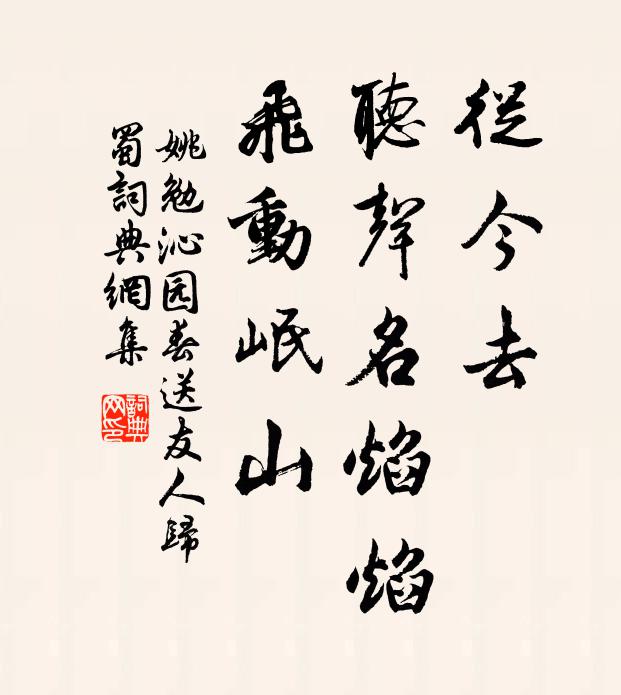 從今去
聽聲名焰焰
飛動岷山
姚勉沁园春送友人歸
蜀詞典網集
詞典
网印